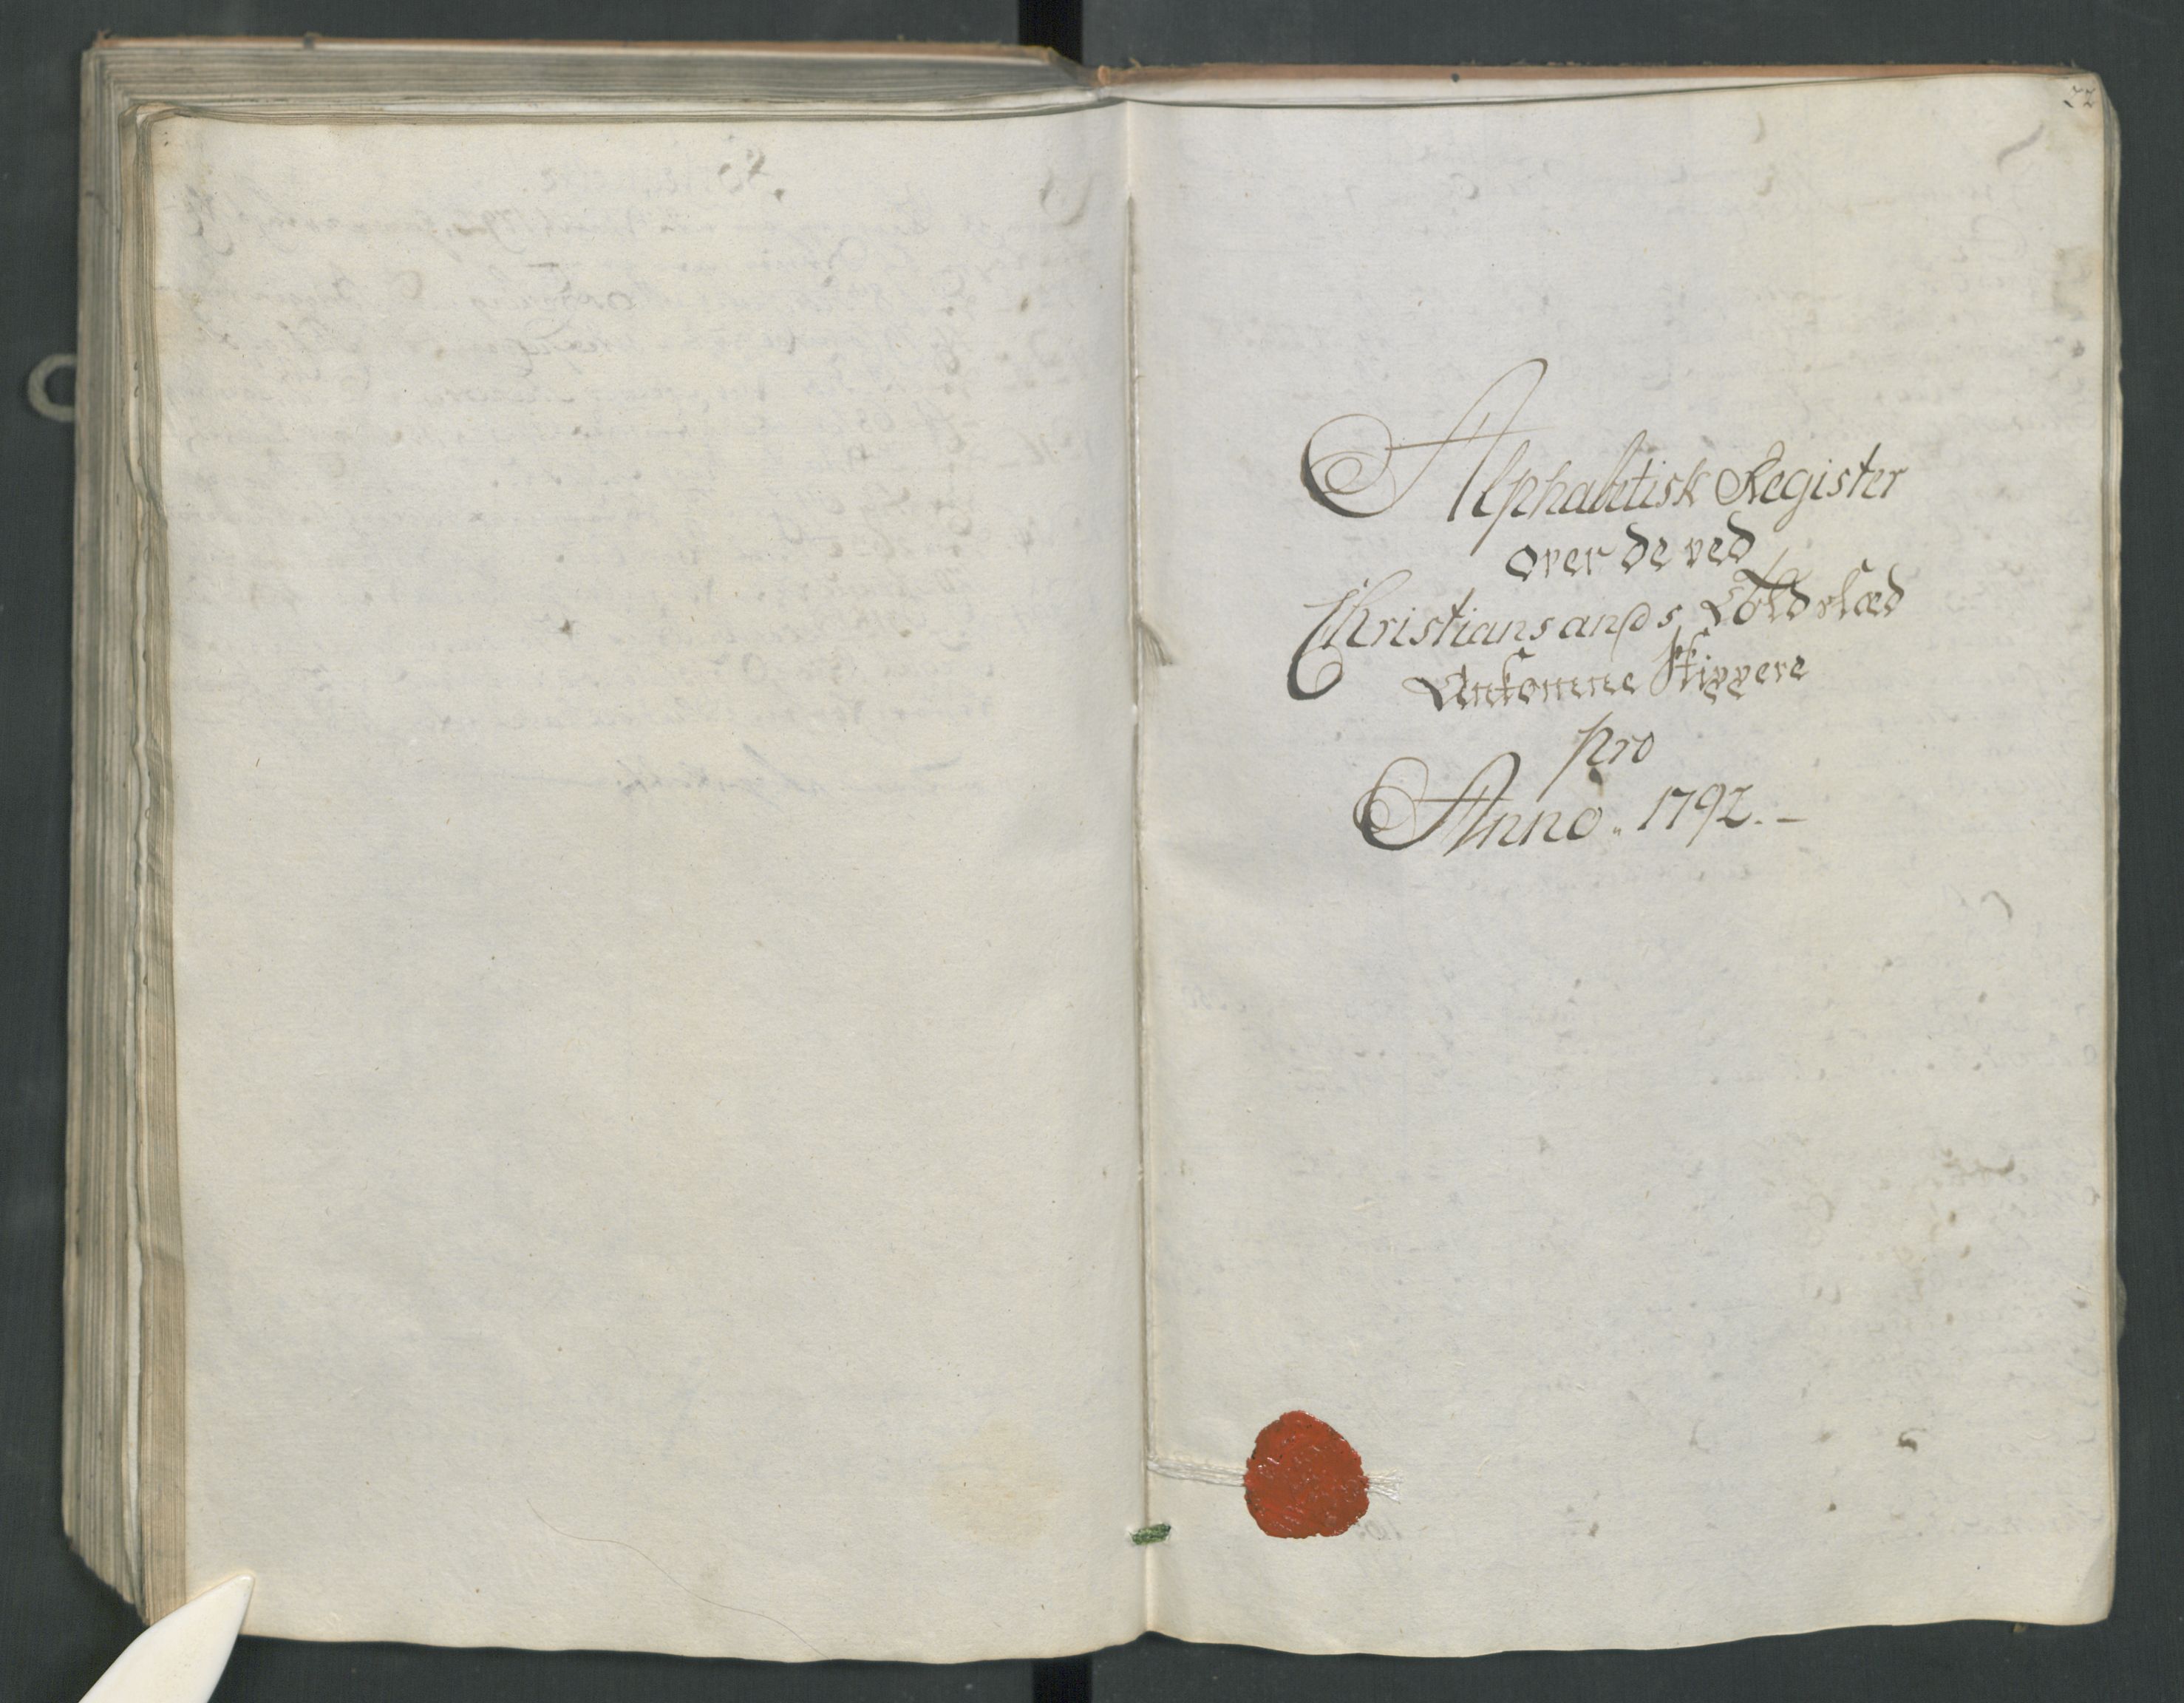 Alphabetisk Register
over de ved
Christiansands Toldstæd
Ankomne Skippere
pro
Anno. 1792. -